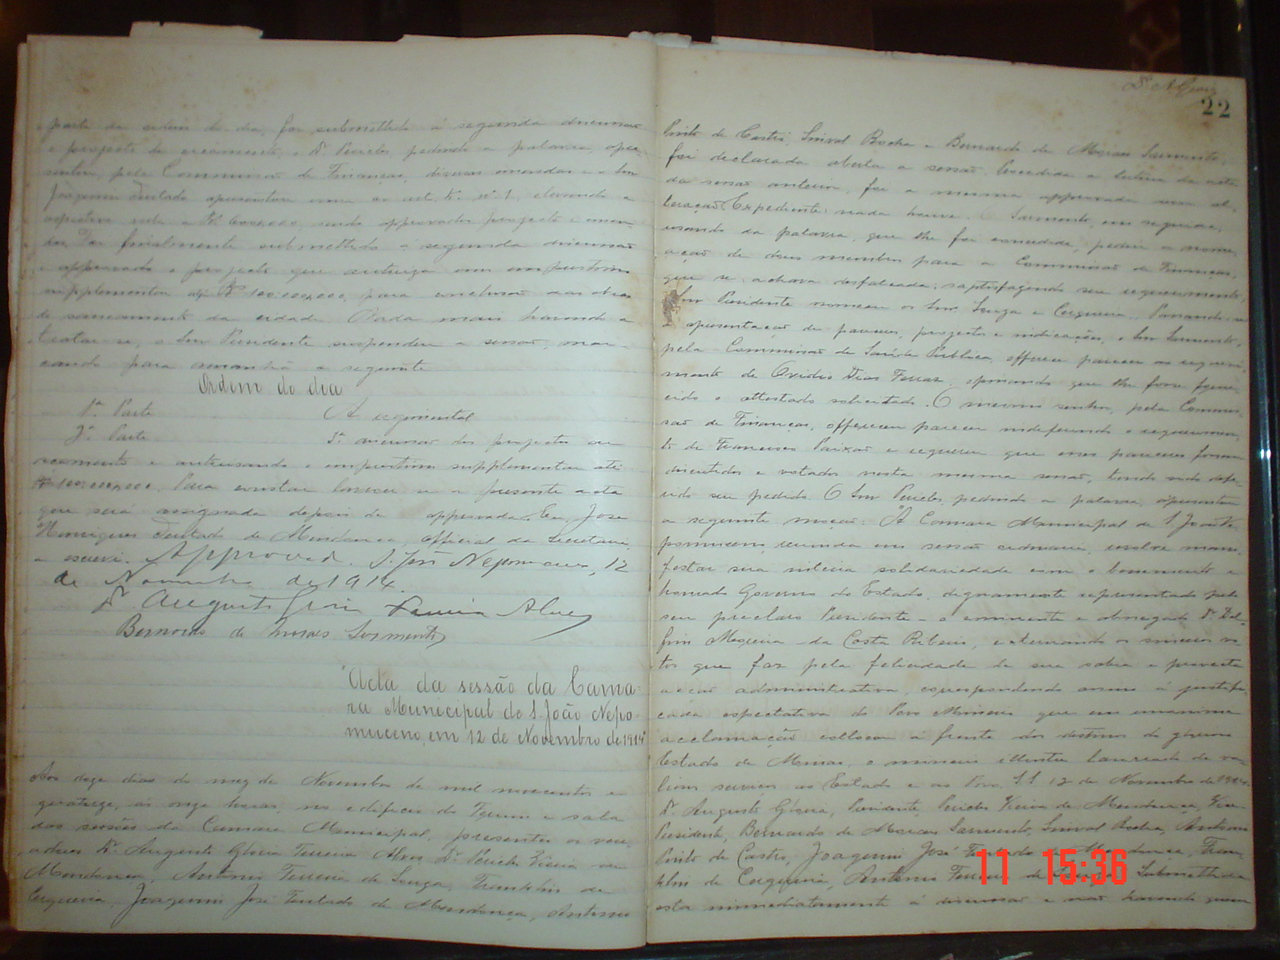 parte da ordem do dia, foi submettido á segunda discussão
o projecto de orçamento, o Dr. Pericles pedindo a palavra, apre
sentou, pela Commissão de Finanças, diversas emendas e o Snr
Joaquim Furtado apresentou uma ao art. nº 1, elevando a
verba a sendo approvados projecto e emen
das. Foi finalmente submettido á segunda discussão
e approvado o projecto que autorisa um emprestimo
supplementar de 100:000,000, para conclusão das obras
de saneamento da cidade. Nada mais havendo a
tratar-se, o Snr Presidente suspendeu a sessão, mar
cando para amanhã a seguinte
Ordem do dia
1ª Parte A regimental
2ª Parte 3ª discussão dos projectos or
çamento e autorisando o emprestimo supplementar até
100:000,000. Para constar lavrou-se a presente acta
que será assignada depois de approvada. Eu, José
Henriques Furtado de Mendonça, official da Secretaria,
a escrevi. Approvada. S. João Nepomuceno, 12
de Novembro de 1914.
Dr. Augusto Gloria Ferreira Alves
Bernardo de Moraes Sarmento
"Acta da sessão da Cama
ra Municipal de S. João Nepo
muceno, em 12 de Novembro de 1914"
Aos doze dias do mez de Novembro de mil novecentos e
quatorze, ás onze horas, no edificio do Forum e sala
das sessões da Camara Municipal, presentes os vere
adores Dr. Augusto Gloria Ferreira Alves, Dr. Pericles Vieira de
Mendonça, Antonio Ferreira de Souza, Franklin de
Cerqueira, Joaquim José Furtado de Mendonça, Antonio
22
Pinto de Castro, Sinval Rocha e Bernardo de Moraes Sarmento,
foi declarada aberta a sessão. Procedida a leitura da acta
da sessão anterior, foi a mesma approvada sem al
teração. Expediente: nada houve. O Sr. Sarmento, em seguida,
usando da palavra, que lhe foi concedida, pediu a nome
ação de dous membros para a Commissão de Finanças,
que se achava desfalcada; satisfazendo seu requerimento,
o Snr Presidente nomeou os Snrs Souza e Cerqueira. Passando-se
á apresentação de pareceres, projectos e indicações, o Snr Sarmento,
pela Commissão de Saúde Publica, offerece parecer ao requeri
mento de Ovidio Dias Ferraz, opinando que lhe fosse forne
cido o attestado solicitado. O mesmo senhor, pela Commis
são de Finanças, offereceu parecer indeferindo o requerimen
to de Francisco Paixão e requereu que esses pareceres fossem
discutidos e votados nesta mesma sessão, tendo sido defe
rido seu pedido. O Snr Pericles, pedindo a palavra, apresentou
a seguinte moção: "A Camara Municipal de S. João Ne
pomuceno, reunida em sessão ordinaria, resolve mani
festar sua inteira solidariedade com o benemerito e
honrado Governo do Estado, dignamente representado pelo
seu preclaro Presidente - o eminente e abnegado Dr. Del
fim Moreira da Costa Ribeiro, externando os sinceros vo
tos que faz pela felicidade de sua sabia e provecta
acção administrativa, correspondendo assim á justifi
cada espectativa do Povo Mineiro que em unanime
acclamação collocou á frente dos destinos do glorioso
Estado de Minas, o mineiro illustre laureado de va
liosos serviços ao Estado e ao Povo. S.S. 12 de Novembro de 1914.
Dr. Augusto Gloria, Presidente, Pericles Vieira de Mendonça, Vice-
Presidente, Bernardo de Moraes Sarmento, Sinval Rocha, Antonio
Pinto de Castro, Joaquim José Furtado de Mendonça, Fran
klin de Cerqueira, Antonio Ferreira de Souza". Submettida
esta immediatamente á discussão e não havendo quem
11 15:36